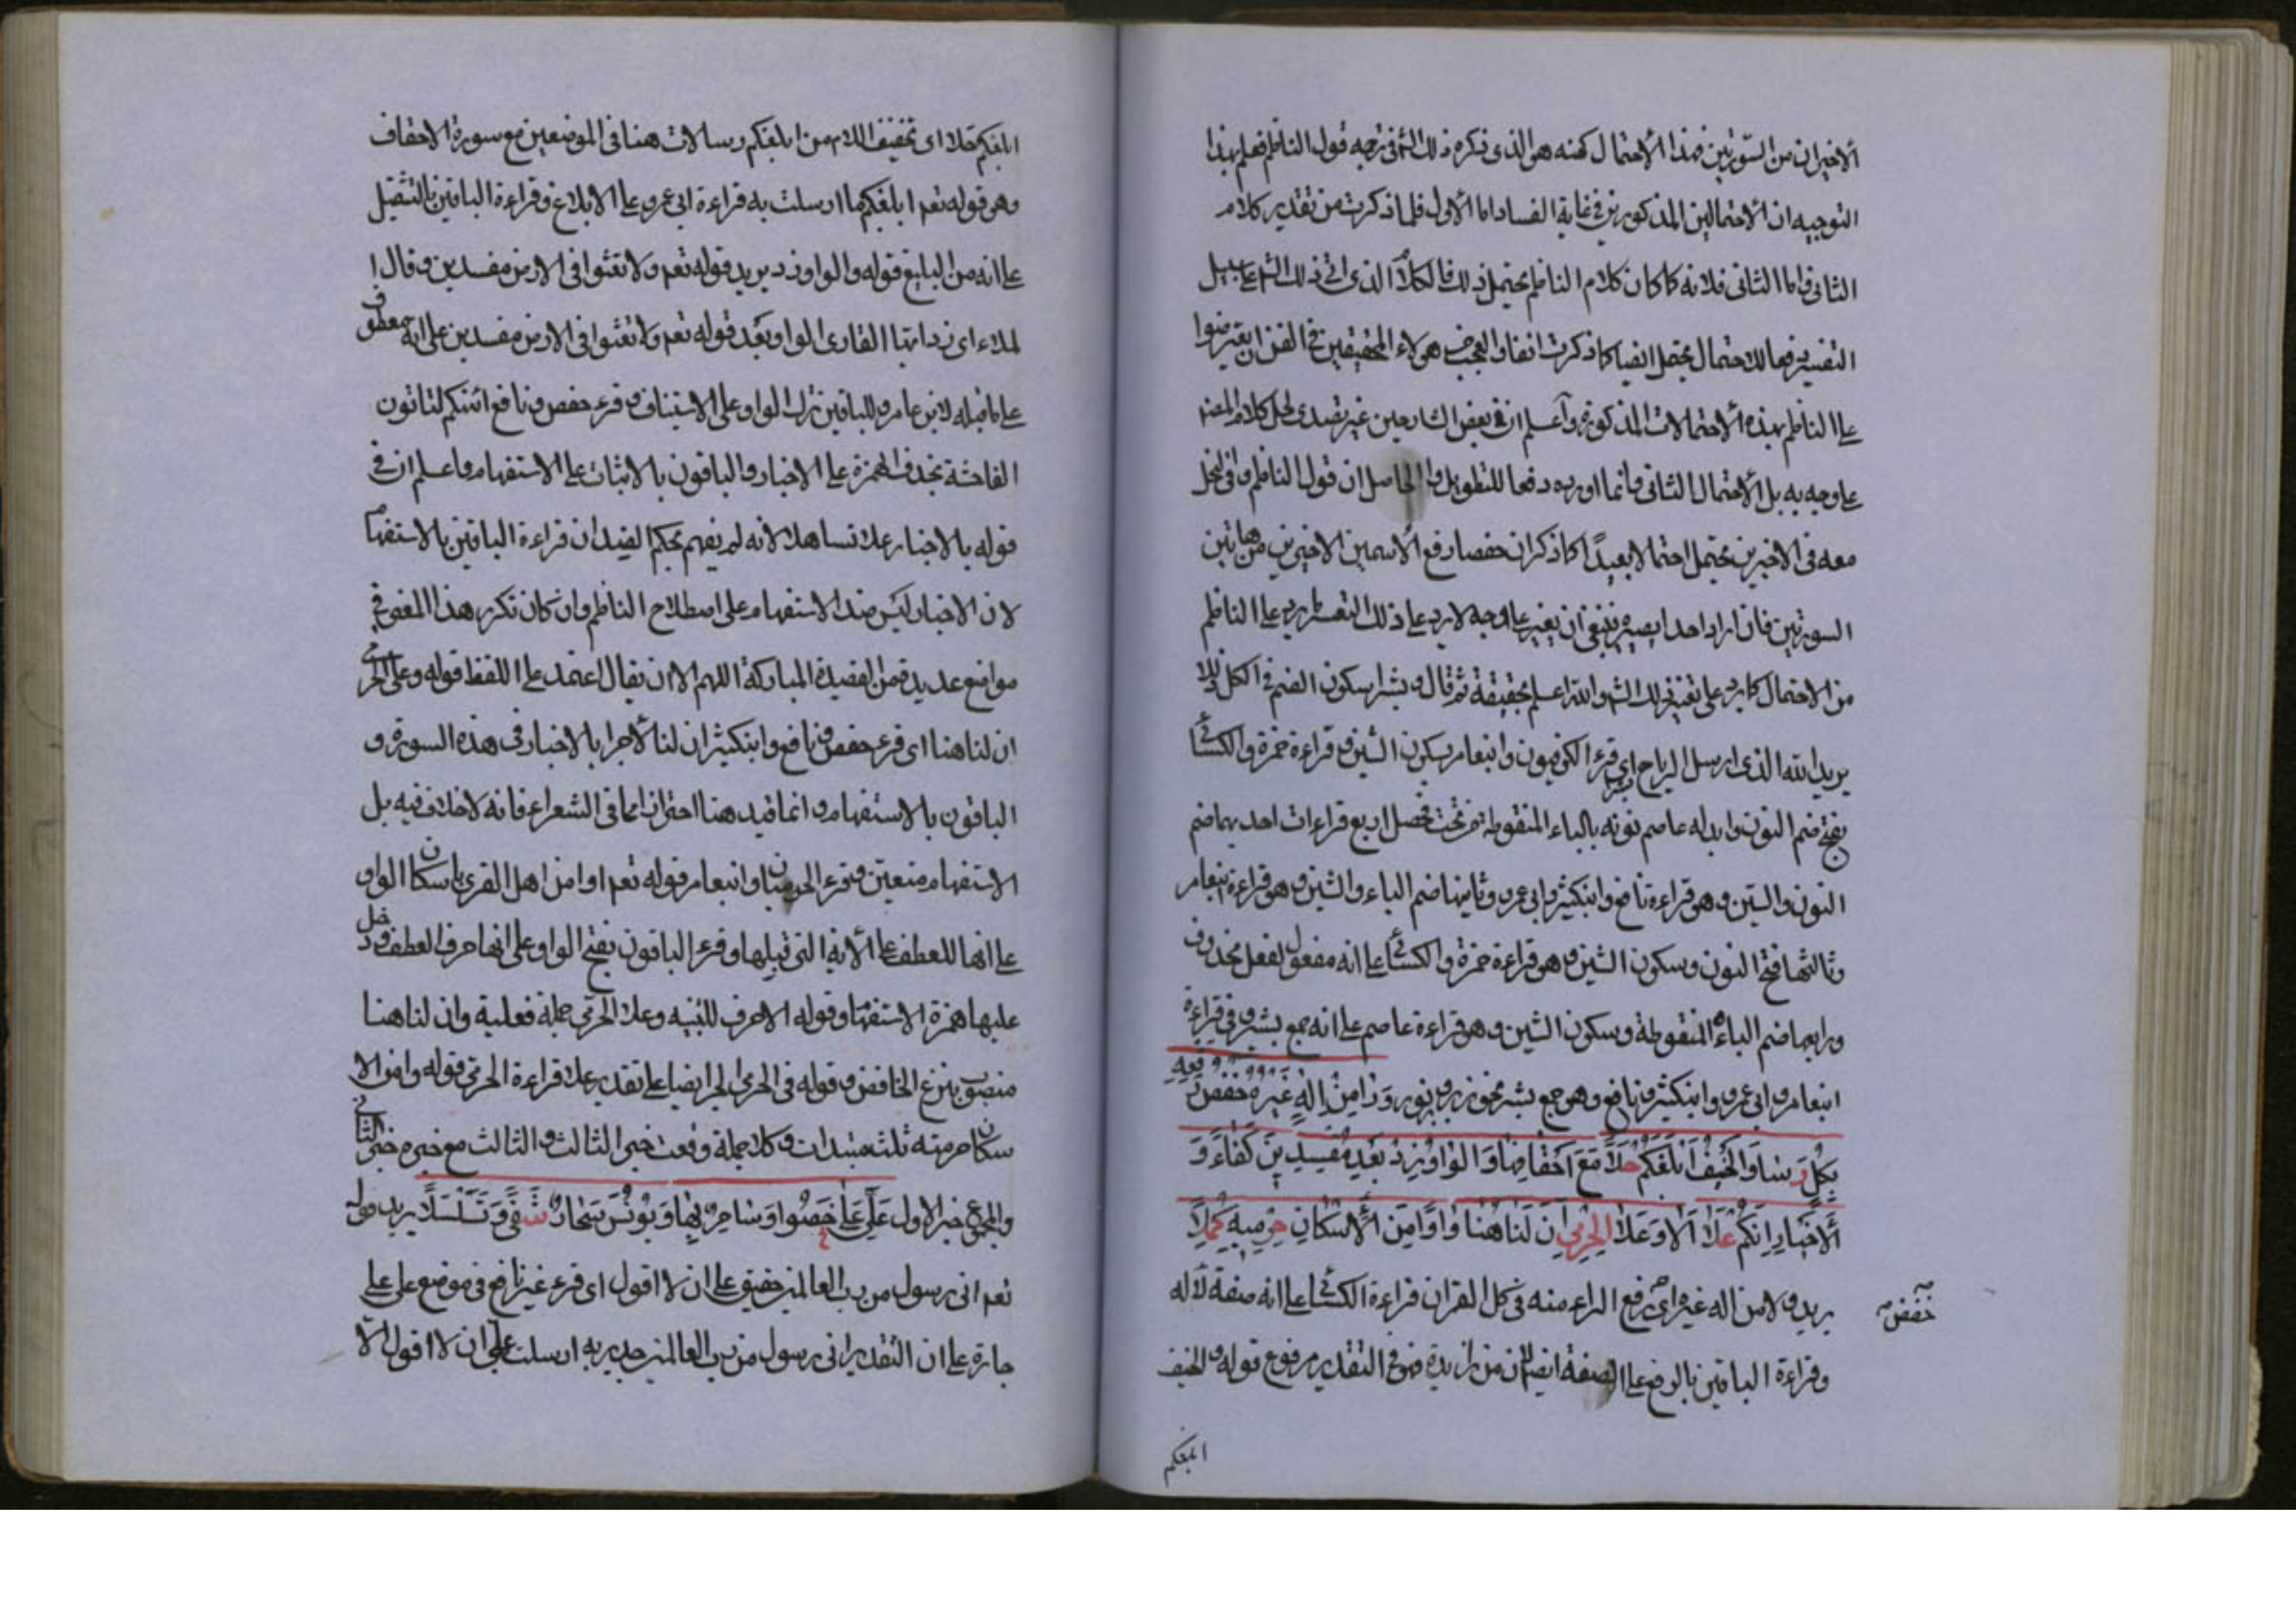 الاخيران من السورتين فهذا الاحتمال كنه هو الذي ذكره ذلك الشم في توجيه قول الناظم فعلم بهذا
التوجيه ان الاحتمالين المذكورين في غاية الفساد اما الاول فلما ذكرت من تقدير كلام
الثاني واما الثاني فلانه كما كان كلام الناظم يحتمل ذلك فالكلام الذي اتي ذلك الشم على سبيل
التفسير فيما لك حتمال يحتمل ايضا كما ذكرت انفا والعجب من هولاء المحققين في الفن ان يعترضوا
على الناظم بهذه الاحتمالات المذكورة واعلم ان في بعض الشارحين غير تصدى لحل كلام المصنف
على وجه به بل الاحتمال الثاني وانما اورده دفعا للتطويل والحاصل ان قول الناظم وفي النحل
معه في الاخيرين يحتمل احتمالا بعيدا كما ذكر ان حفصا رفع الاسمين الاخيرين من هاتين
السورتين فان اراد احد ينبغي ان يغير على وجه لا يرد على ذلك التفسير ما يرد على الناظم
من الاحتمال كما يرد على تفسير ذلك الشم والله اعلم بحقيقة ثم قال ونشرا سكون الضم في الكل ذللا
يريد الله الذي ارسل الرياح اي قرء الكوفيون وابنعامر بسكون الشين وقراءة حمزة والكسائي
بفتح ضم النون وابدله عاصم نونه بالباء المنقوطة من تحت فحصل اربع قراءات احديهما ضم
النون والشين وهو قراءة نافع وابنكثير وابي عمرو وثانيها ضم الباء والشين وهو قراءة ابنعامر
وثالثها فتح النون وسكون الشين وهو قراءة حمزة والكسائي على انه مفعول لفعل محذوف
ورابعها ضم الباء المنقوطة وسكون الشين وهو قراءة عاصم على انه جمع بشير وفي قراءة
ابنعامر وابي عمرو وابنكثير ونافع وهو جمع بشر نحو زبر وزبور وَرَا مِنْ اِلٰهٍ غَيْرُهُ خَفْضُ رَفْعِهِ
بِكُلٍّ رَسَا وَالْخِفُّ اُبْلِغُكُمْ حَلاَ مَعَ اَحْقَافِهَا وَالْوَاوَ زِدْ بَعْدَ مُفْسِدِينَ كُفْاءً وَ
بِالْاِخْبَارِ اِنَّكُمْ عَلاَ اَلَا وَعَلَا الْحِرْمِيُّ اِنَّ لَنَا هُنَا وَاوَ اَمِنَ الْاِسْكَانُ حِرْمِيُّهِ كَلَا
يريد ولا من اله غيره اي رفع الراء منه في كل القران قراءة الكسائي على انه صفة لاله
خفض صح
وقراءة الباقين بالرفع على الصفة ايضا لان من زايدة فهو في التقدير مرفوع قوله والخف
ابلغكم
ابلغكم حلا اي تخفيف اللام من ابلغكم رسالات هنا في الموضعين مع سورة الاحقاف
وهو قوله تعم ابلغكم ما ارسلت به قراءة ابي عمرو على الابلاغ وقراءة الباقين بالتثقيل
على انه من التبليغ قوله والواو زد يريد قوله تعم ولا تعثوا في الارض مفسدين وقال ا
لملاء اي زد ايها القارى الواو بعد قوله تعم ولا تعثوا في الارض مفسدين على انه معطوف
على ما قبله لابن عامر وللباقين ترك الواو على الاستيناف وقرء حفص ونافع ائنكم لتاتون
الفاحشة بحذف الهمزة على الاخبار والباقون بالاثبات على الاستفهام واعلم ان في
قوله بالاخبار علا تساهلا لانه لم يفهم بحكم الضد ان قراءة الباقين بالاستفهام
لان الاخبار ليس ضد الاستفهام على اصطلاح الناظم وان كان تكرر هذا المعنى في
مواضع عديدة من القصيدة المباركة اللهم الا ان يقال اعتمد على اللفظ قوله وعلى الحرمي
ان لنا هنا اي قرء حفص ونافع وابنكثير ان لنا لاجرا بالاخبار في هذه السورة و
الباقون بالاستفهام وانما قيد هنا احترازا مما في الشعراء فانه لا خلاف فيه بل
الاستفهام متعين وقرء الحرميان وابنعامر قوله تعم اوامن اهل القرى باسكان الواو
على انها للعطف على الاية التي قبلها وقرء الباقون بفتح الواو على انها حرف العطف ودخل
عليها همزة الاستفهام وقوله الا حرف للتنبيه وعلا الحرمي جملة فعلية وان لنا هنا
منصوب بنزع الخافض وقوله في الحرمي لجرا ايضا على تقدير علا قراءة الحرمي قوله وامن الا
سكان حرميه ثلث مبتدات وكلا جملة وقعت خبر الثالث والثالث مع خبره خبر الثاني
والمجموع خبر الاول عَلَيَّ عَلَى خَصُّوا وَسَاحِرٍ بِهَا وَيُونُسَ سَحَّارٍ شَفَى وَتَسَلْسَلَا يريد قوله
تعم اني رسول من رب العالمين حقيق على ان لا اقول اي قرء غير نافع في موضع على على
جارة على ان التقدير اني رسول من رب العالمين جدير به ارسلت على ان لا اقول الا